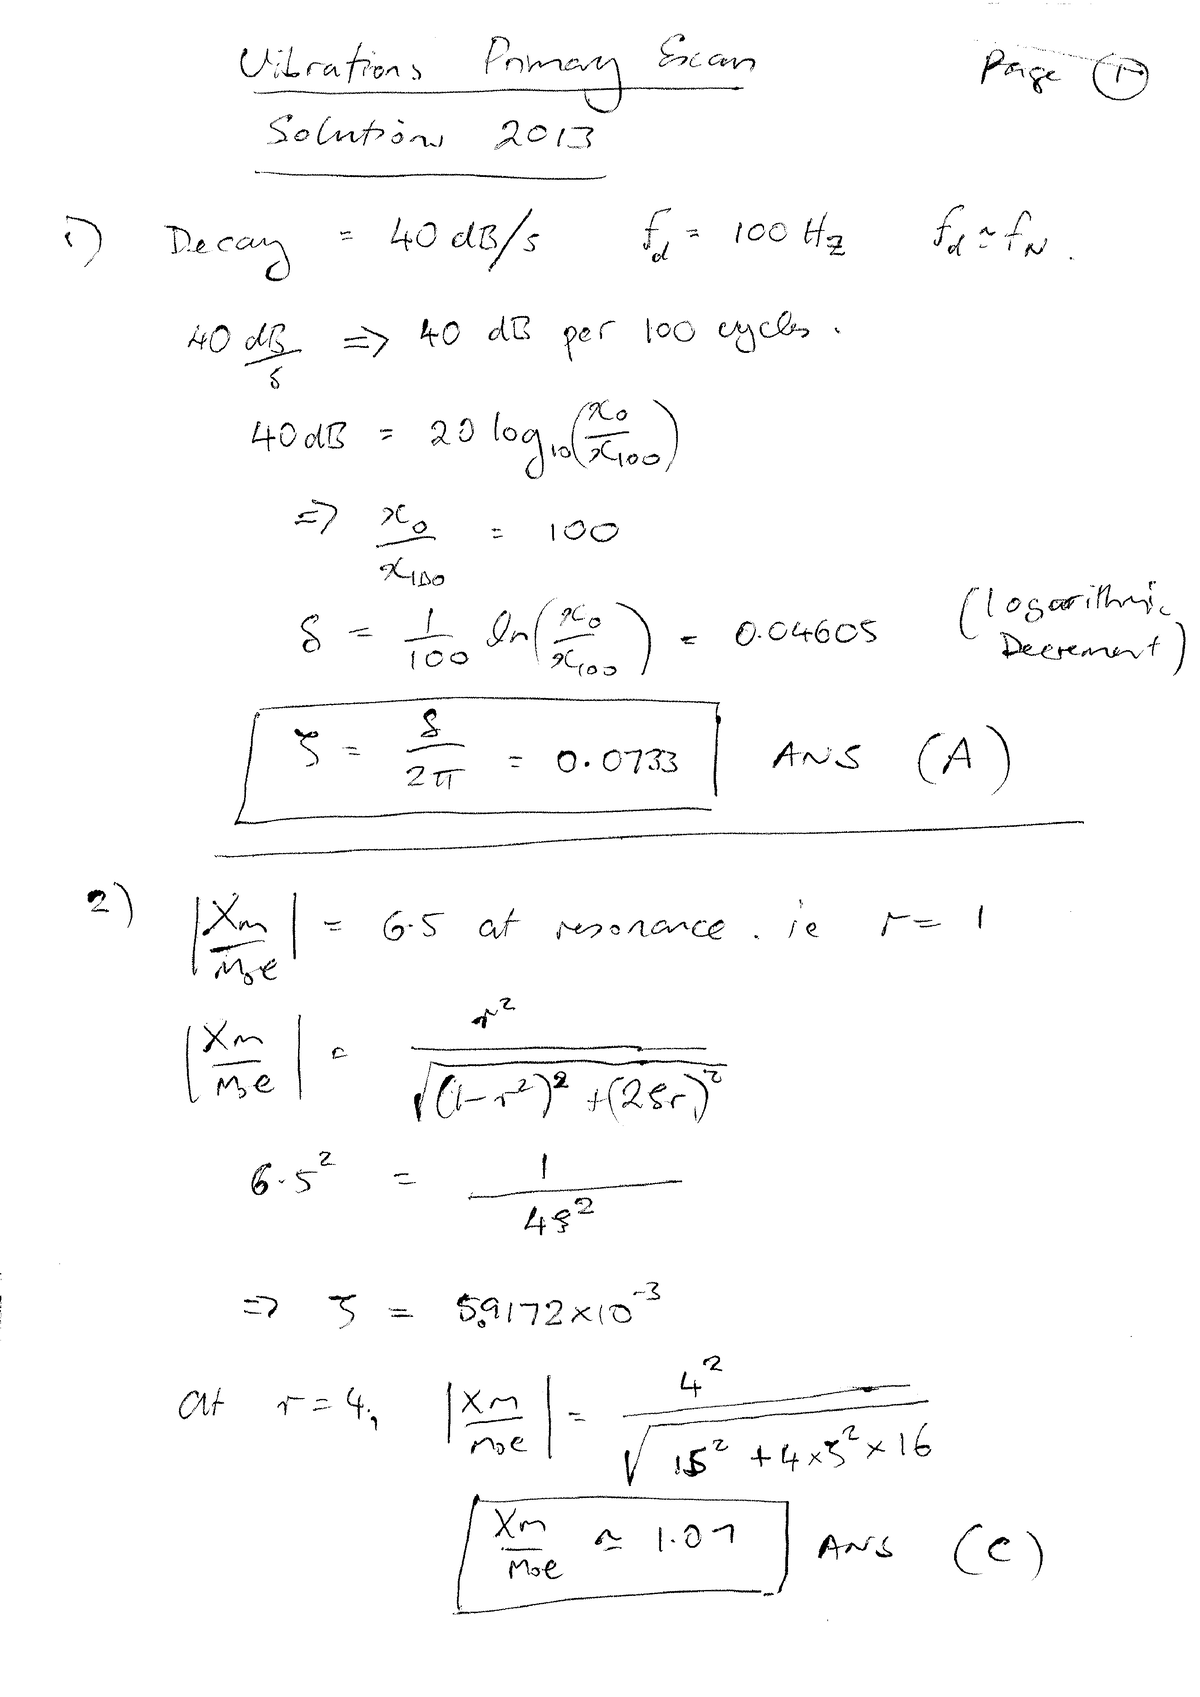 Vibrations Primary Exam Page 1
Solutions 2013
1) Decay = 40 dB/s f_d = 100 Hz f_d ≃ f_N.
40 dB/s => 40 dB per 100 cycles.
40 dB = 20 log₁₀(x₀/x₁₀₀)
=> x₀/x₁₀₀ = 100
δ = 1/100 ln(x₀/x₁₀₀) = 0.04605 (Logarithmic Decrement)
ζ = δ/2π = 0.0733 ANS (A)
2) |Xm/m₀e| = 6.5 at resonance. ie r = 1
|Xm/m₀e| = r²/√((1-r²)² + (2ζr)²)
6.5² = 1/4ζ²
=> ζ = 5.9172×10⁻³
at r = 4, |Xm/m₀e| = 4²/√(15² + 4×ζ²×16)
Xm/m₀e ≃ 1.07 ANS (C)